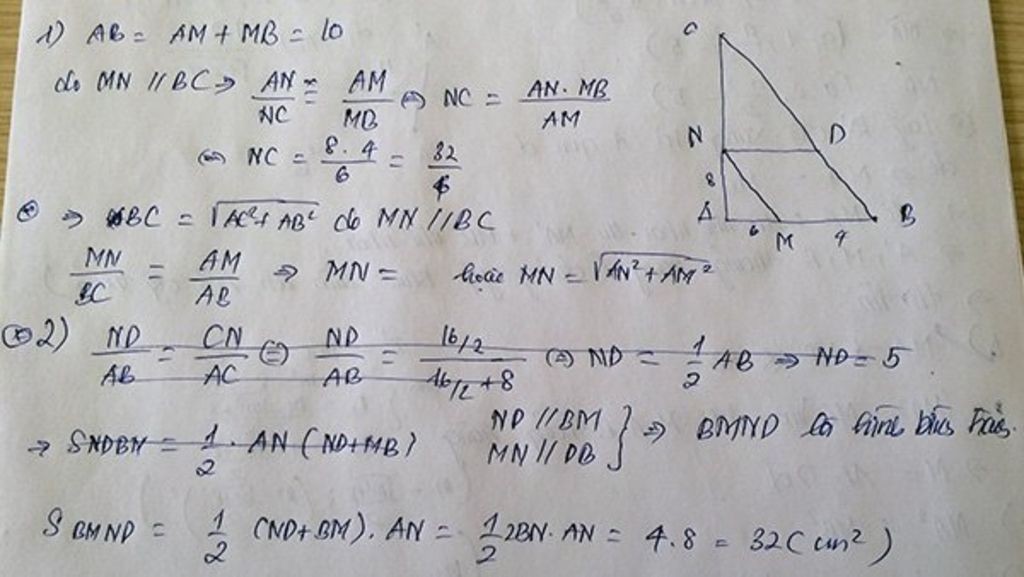 1) AB = AM + MB = 10
do MN // BC ⇒ AN/NC = AM/MB ⇔ NC = AN . MB/AM
⇔ NC = 8 . 4/6 = 32/6
⊛ ⇒ BC = √AC² + AB² do MN // BC
MN/BC = AM/AB ⇒ MN = hoặc MN = √AN² + AM²
⊛ 2) ND/AB = CN/AC ⇔ ND/AB = 16/2/16/2 + 8 ⇔ ND = 1/2 AB ⇒ ND = 5
→ SNDBM = 1/2 . AN (ND + MB)
ND // BM
MN // DB } ⇒ BMND là hình bình hành.
S BMND = 1/2 (ND + BM) . AN = 1/2 2BN . AN = 4.8 = 32 (cm²)
C
N
D
8
A
6
M
4
B